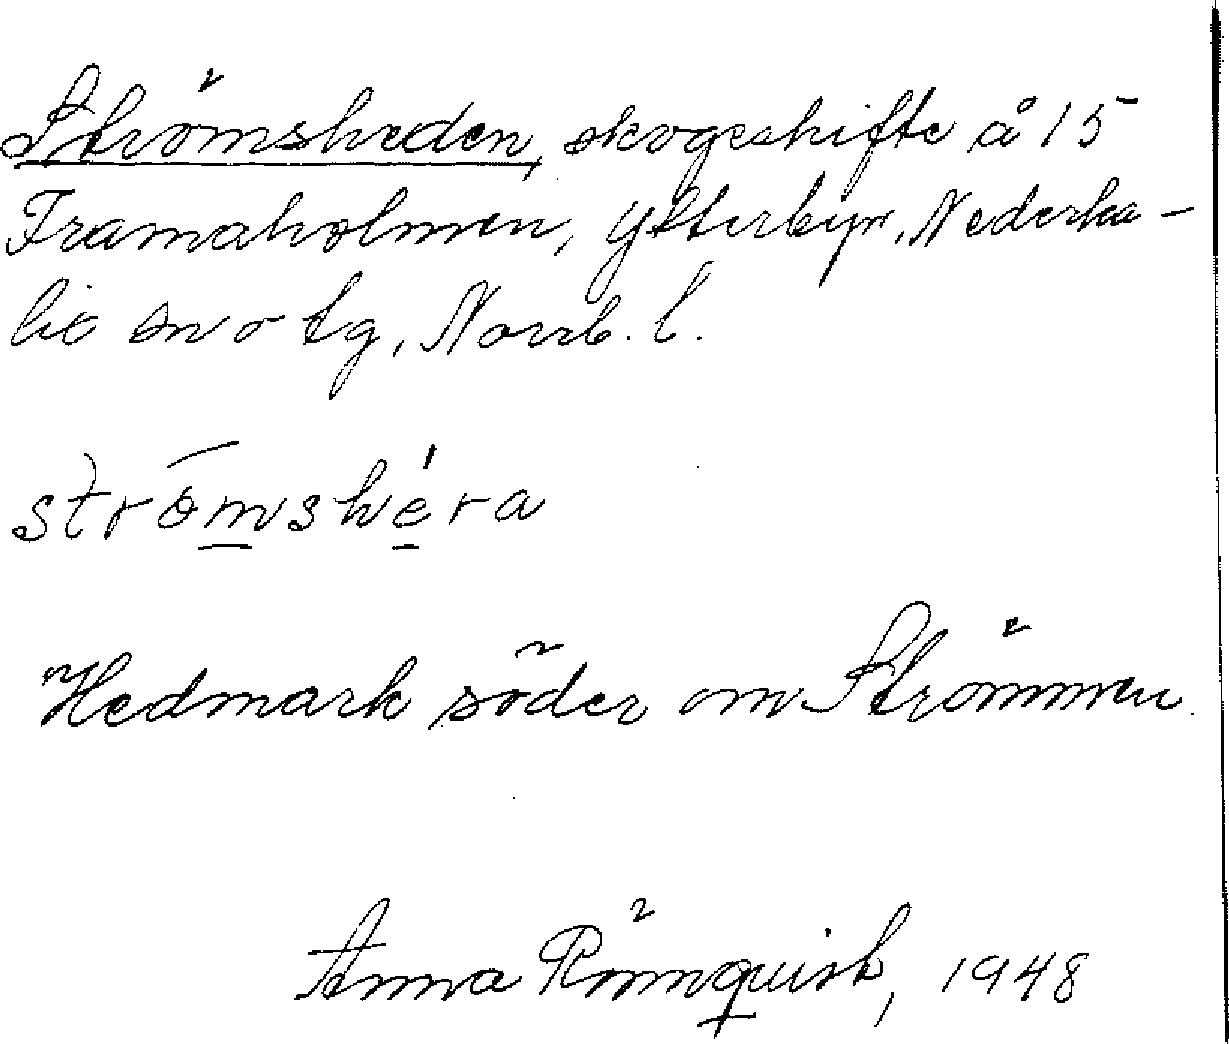 Strömsheden, skogsskifte å 15
Framaholmen, Ytterbyn, Nederka-
lix sn o tg, Norrb. l.
strömshéra
Hedmark söder om Strömmen.
Anna Rönnquist, 1948